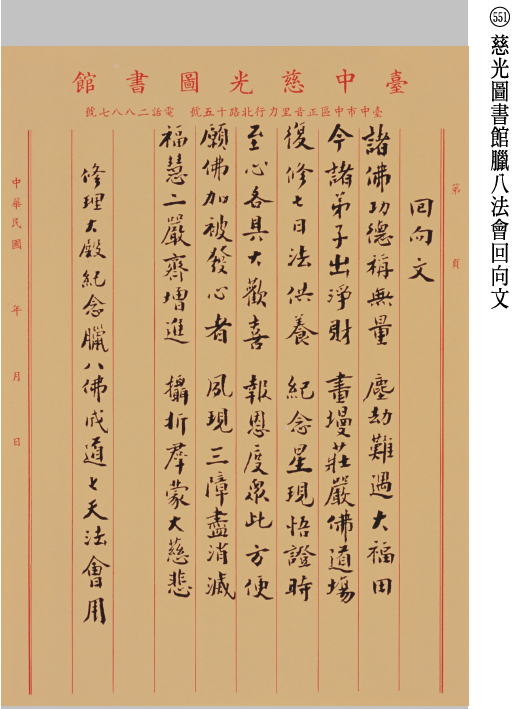 551 慈光圖書館臘八法會回向文
臺中慈光圖書館
臺中市中區正音里力行北路十五號 電話二八八七號
第 頁
回向文
諸佛功德稱無量 塵劫難遇大福田
今諸弟子出淨財 畫墁莊嚴佛道場
復修七日法供養 紀念星現悟證時
至心各具大歡喜 報恩度眾此方便
願佛加被發心者 夙現三障盡消滅
福慧二嚴齊增進 攝折羣蒙大慈悲
修理大殿紀念臘八佛成道七天法會用
中華民國 年 月 日